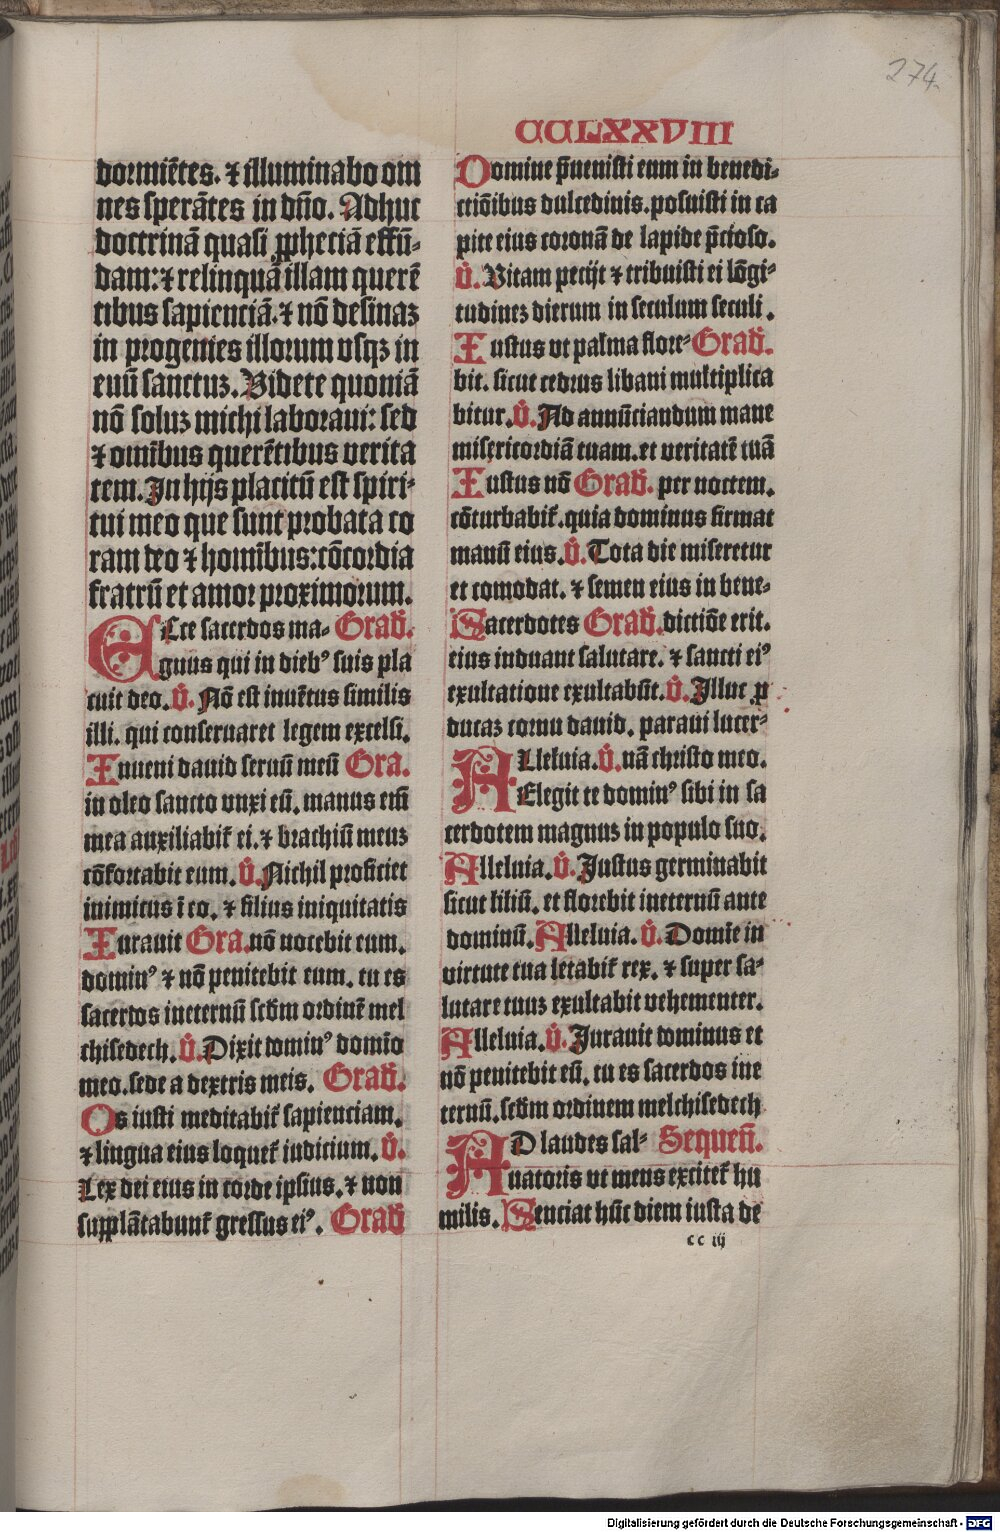 274.
CCLXXVIII
dormiẽtes. ⁊ illuminabo om
nes sperãtes in dño. Adhuc
doctrinã quasi ꝓpheciã effũ-
dam: ⁊ relinquã illam querẽ
tibus sapienciã. ⁊ nõ desinaꝫ
in progenies illorum vsqꝫ in
euũ sanctuꝫ. Videte quoniã
nõ soluꝫ michi laboraui: sed
⁊ omĩbus querẽtibus verita
tem. In hijs placitũ est spiri-
tui meo que sunt probata co
ram deo ⁊ homĩbus: cõcordia
fratrũ et amor proximorum.
ECce sacerdos ma- Grad̃.
gnus qui in dieb⁹ suis pla
cuit deo. V̾. Nõ est inuẽtus similis
illi. qui conseruaret legem excelsi.
Inueni dauid seruũ meũ Gra.
in oleo sancto vnxi eũ. manus eĩ
mea auxiliabit̃ ei. ⁊ brachiũ meuꝫ
cõfortabit eum. V̾. Nichil proficiet
inimicus ĩ eo. ⁊ filius iniquitatis
Iurauit Gra. nõ nocebit eum.
domin⁹ ⁊ nõ penitebit eum. tu es
sacerdos ineternũ scd̃m ordinẽ mel
chisedech. V̾. Dixit domin⁹ domĩo
meo. sede a dextris meis. Grad̃.
Os iusti meditabit̃ sapienciam.
⁊ lingua eius loquet̃ iudicium. V̾.
Lex dei eius in corde ipsius. ⁊ non
supplãtabunt̃ gressus ei⁹. Grad̃
Domine p̃uenisti eum in benedi-
ctiõibus dulcedinis. posuisti in ca
pite eius coronã de lapide p̃cioso.
V̾. Vitam pecijt ⁊ tribuisti ei lõgi-
tudineꝫ dierum in seculum seculi.
Iustus vt palma flore- Grad̃.
bit. sicut cedrus libani multiplica
bitur. V̾. Ad annũciandum mane
misericordiã tuam. et veritatẽ tuã
Iustus nõ Grad̃. per noctem.
cõturbabit̃. quia dominus firmat
manũ eius. V̾. Tota die miseretur
et comodat. ⁊ semen eius in bene-
Sacerdotes Grad̃. dictiõe erit.
eius induant salutare. ⁊ sancti ei⁹
exultatione exultabũt. V̾. Illuc ꝓ
ducaꝫ cornu dauid. paraui lucer-
ALleluia. V̾. nã christo meo.
Elegit te domin⁹ sibi in sa
cerdotem magnuꝫ in populo suo.
Alleluia. V̾. Justus germinabit
sicut liliũ. et florebit ineternũ ante
dominũ. Alleluia. V̾. Domĩe in
virtute tua letabit̃ rex. ⁊ super sa-
lutare tuuꝫ exultabit vehementer.
Alleluia. V̾. Jurauit dominus et
nõ penitebit eũ. tu es sacerdos ine
ternũ. scd̃m ordinem melchisedech
AD laudes sal- Sequeñ.
uatoris vt mens excitet̃ hu
milis. Senciat hũc diem iusta de
cc iij
Digitalisierung gefördert durch die Deutsche Forschungsgemeinschaft - DFG